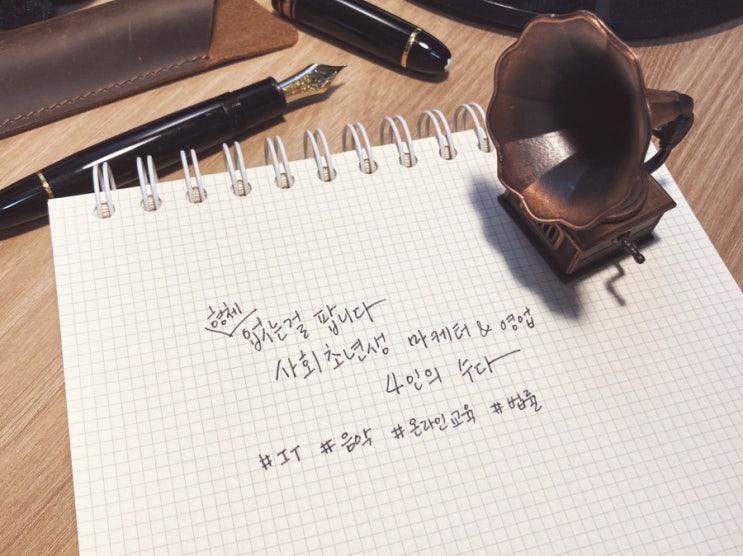 형체
없는걸 팝니다
사회초년생 마케터 & 영업
4인의 수다
#IT #음악 #온라인교육 #법률